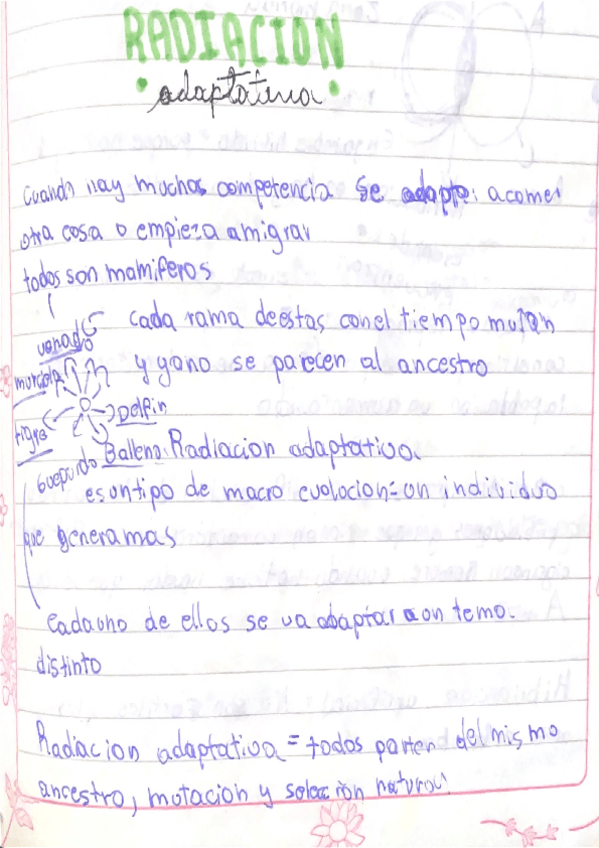 RADIACION
adaptativa
Cuando hay muchas competencia se adapta a comer
otra cosa o empieza a migrar
todos son mamiferos
cada rama de estas con el tiempo mutan
venado
y ya no se parecen al ancestro
murciela
Delfin
tigre
Ballena Radiacion adaptativa
Guepardo
es un tipo de macro evolocion = un individuo
que genera mas
Cada uno de ellos se va adaptar a un
distinto
Radacion adaptativa = todos parten del mismo
ancestro, mutacion y selección natural